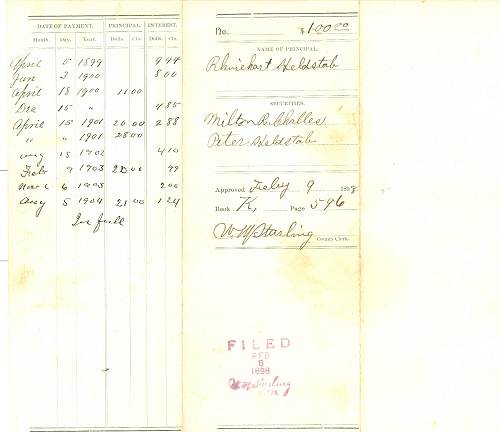 DATE OF PAYMENT. PRINCIPAL. INTEREST.
Month. Day. Year. Dolls. Cts. Dolls. Cts.
April 5 1899 9 44
Jan 3 1900 8 00
April 18 1900 11 00
Dec 15 " 4 85
April 15 1901 20 00 2 88
" " 1901 28 00
Aug 18 1902 4 10
Feb 9 1903 20 00 99
6 1903 2 00
Aug 5 1904 21 00 1 24
In full
No. $100.00
NAME OF PRINCIPAL.
Rhinehart Heldstab
SECURITIES.
Milton R. Challes
Peter Heldstab
Approved Feby 9 1898
Book K, Page 596
W. W. Starling County Clerk.
FILED
FEB
1898